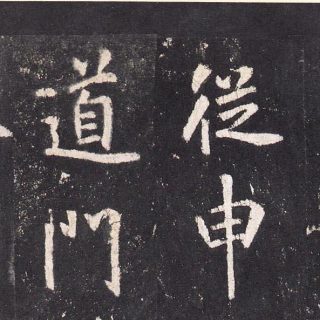 從申
道門